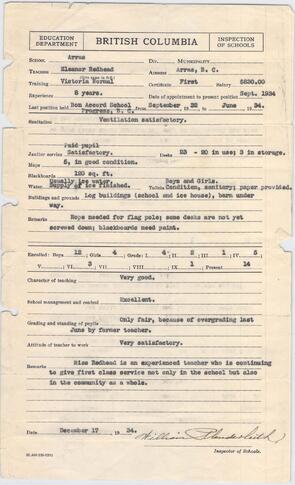 EDUCATION DEPARTMENT BRITISH COLUMBIA INSPECTION OF SCHOOLS
SCHOOL Arras DIV. MUNICIPALITY
TEACHER Eleanor Redhead ADDRESS Arras, B. C.
Training Victoria Normal Certificate First Salary $830.00
Experience 8 years. Date of appointment to present position Sept. 1934
Last position held Bon Accord School Progress, B. C. from September 32 to June 34.
Ventilation satisfactory.
Paid pupil
Janitor service Satisfactory. Desks 23 - 20 in use; 3 in storage.
Maps 5, in good condition.
Blackboards 120 sq. ft.
Usually ice water. Boys and Girls.
Water Supply of ice finished. Toilets Condition, sanitary; paper provided.
Buildings and grounds Log buildings (school and ice house), barn under way.
Remarks Rope needed for flag pole; some desks are not yet
screwed down; blackboards need paint.
Enrolled: Boys 12 Girls 4 I 4 II 2 III 1 IV 5
V VI 3 VII VIII IX 1 Present 14
Character of teaching Very good.
School management and control Excellent.
Grading and standing of pupils Only fair, because of overgrading last
June by former teacher.
Attitude of teacher to work Very satisfactory.
Remarks Miss Redhead is an experienced teacher who is continuing
to give first class service not only in the school but also
in the community as a whole.
Date December 17 1934. William Plenderleith
Inspector of Schools.